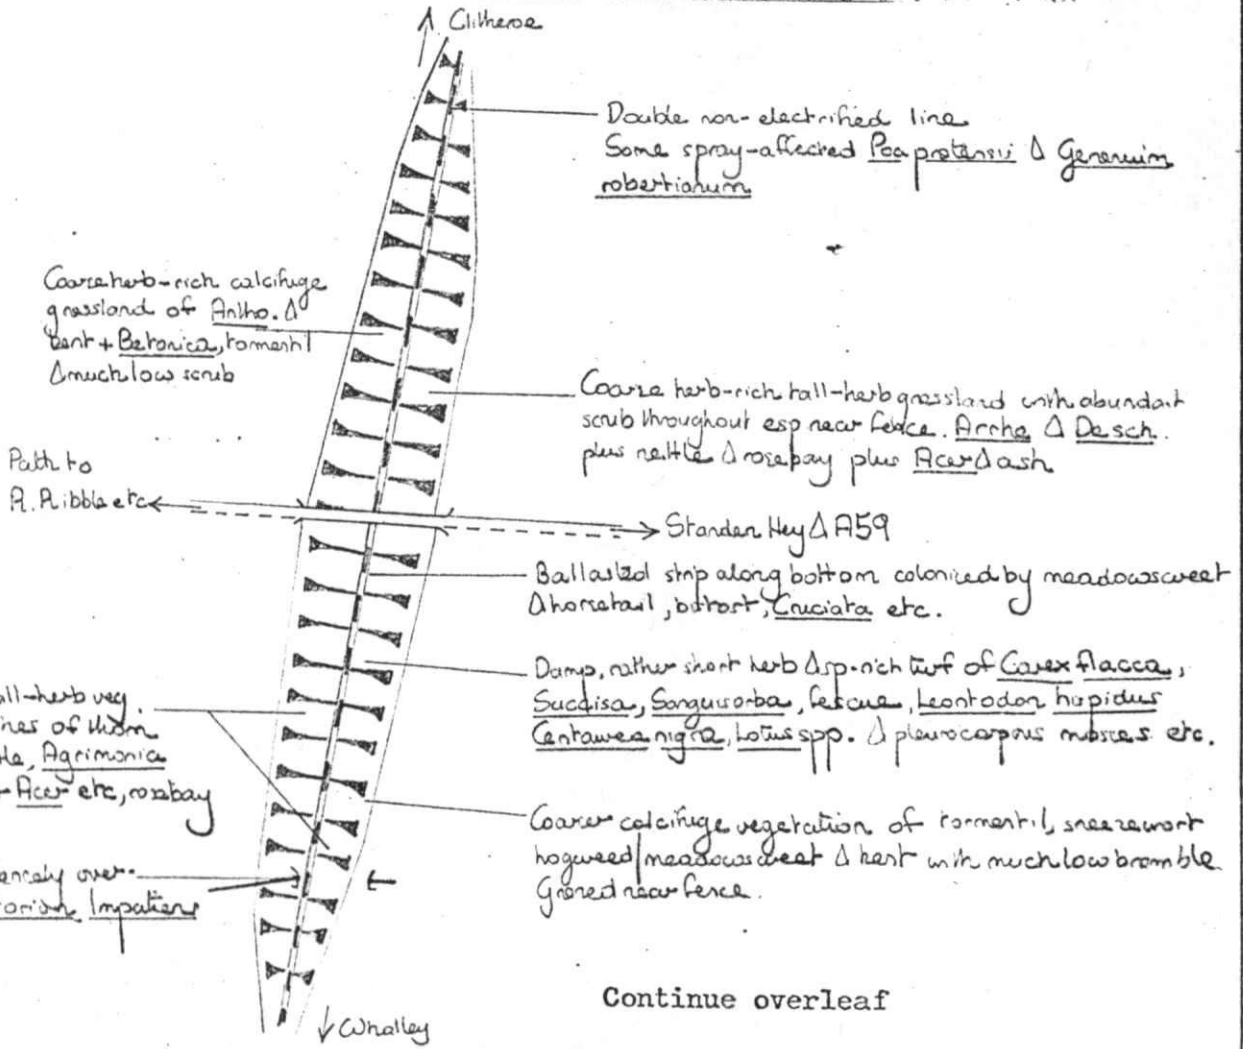 Clitheroe
Double non-electrified line
Some spray-affected Poa pratensis Δ Geranium
robertianum
Coarse herb-rich calcifuge
grassland of Antho. Δ
bent + Betonica, tormentil
Δ much low scrub
Coarse herb-rich tall-herb grassland with abundant
scrub throughout esp near fence. Arrhe Δ Desch.
plus nettle Δ rosebay plus Acer Δ ash
Path to
R. Ribble etc
Standen Hey Δ A59
Ballasted strip along bottom colonized by meadowsweet
Δ horsetail, butort, Cruciata etc.
Damp, rather short herb Δ sp-rich turf of Carex flacca,
Succisa, Sanguisorba, fescue, Leontodon hispidus
Centaurea nigra, Lotus spp. Δ pleurocarpous mosses etc.
all-herb veg.
nes of thorn
le, Agrimonia
Acer etc, rosebay
Coarser calcifuge vegetation of tormentil, sneezewort
hogweed/meadowsweet Δ bent with much low bramble
Grazed near fence.
ensely over-
orian Impatiens
Continue overleaf
Whalley